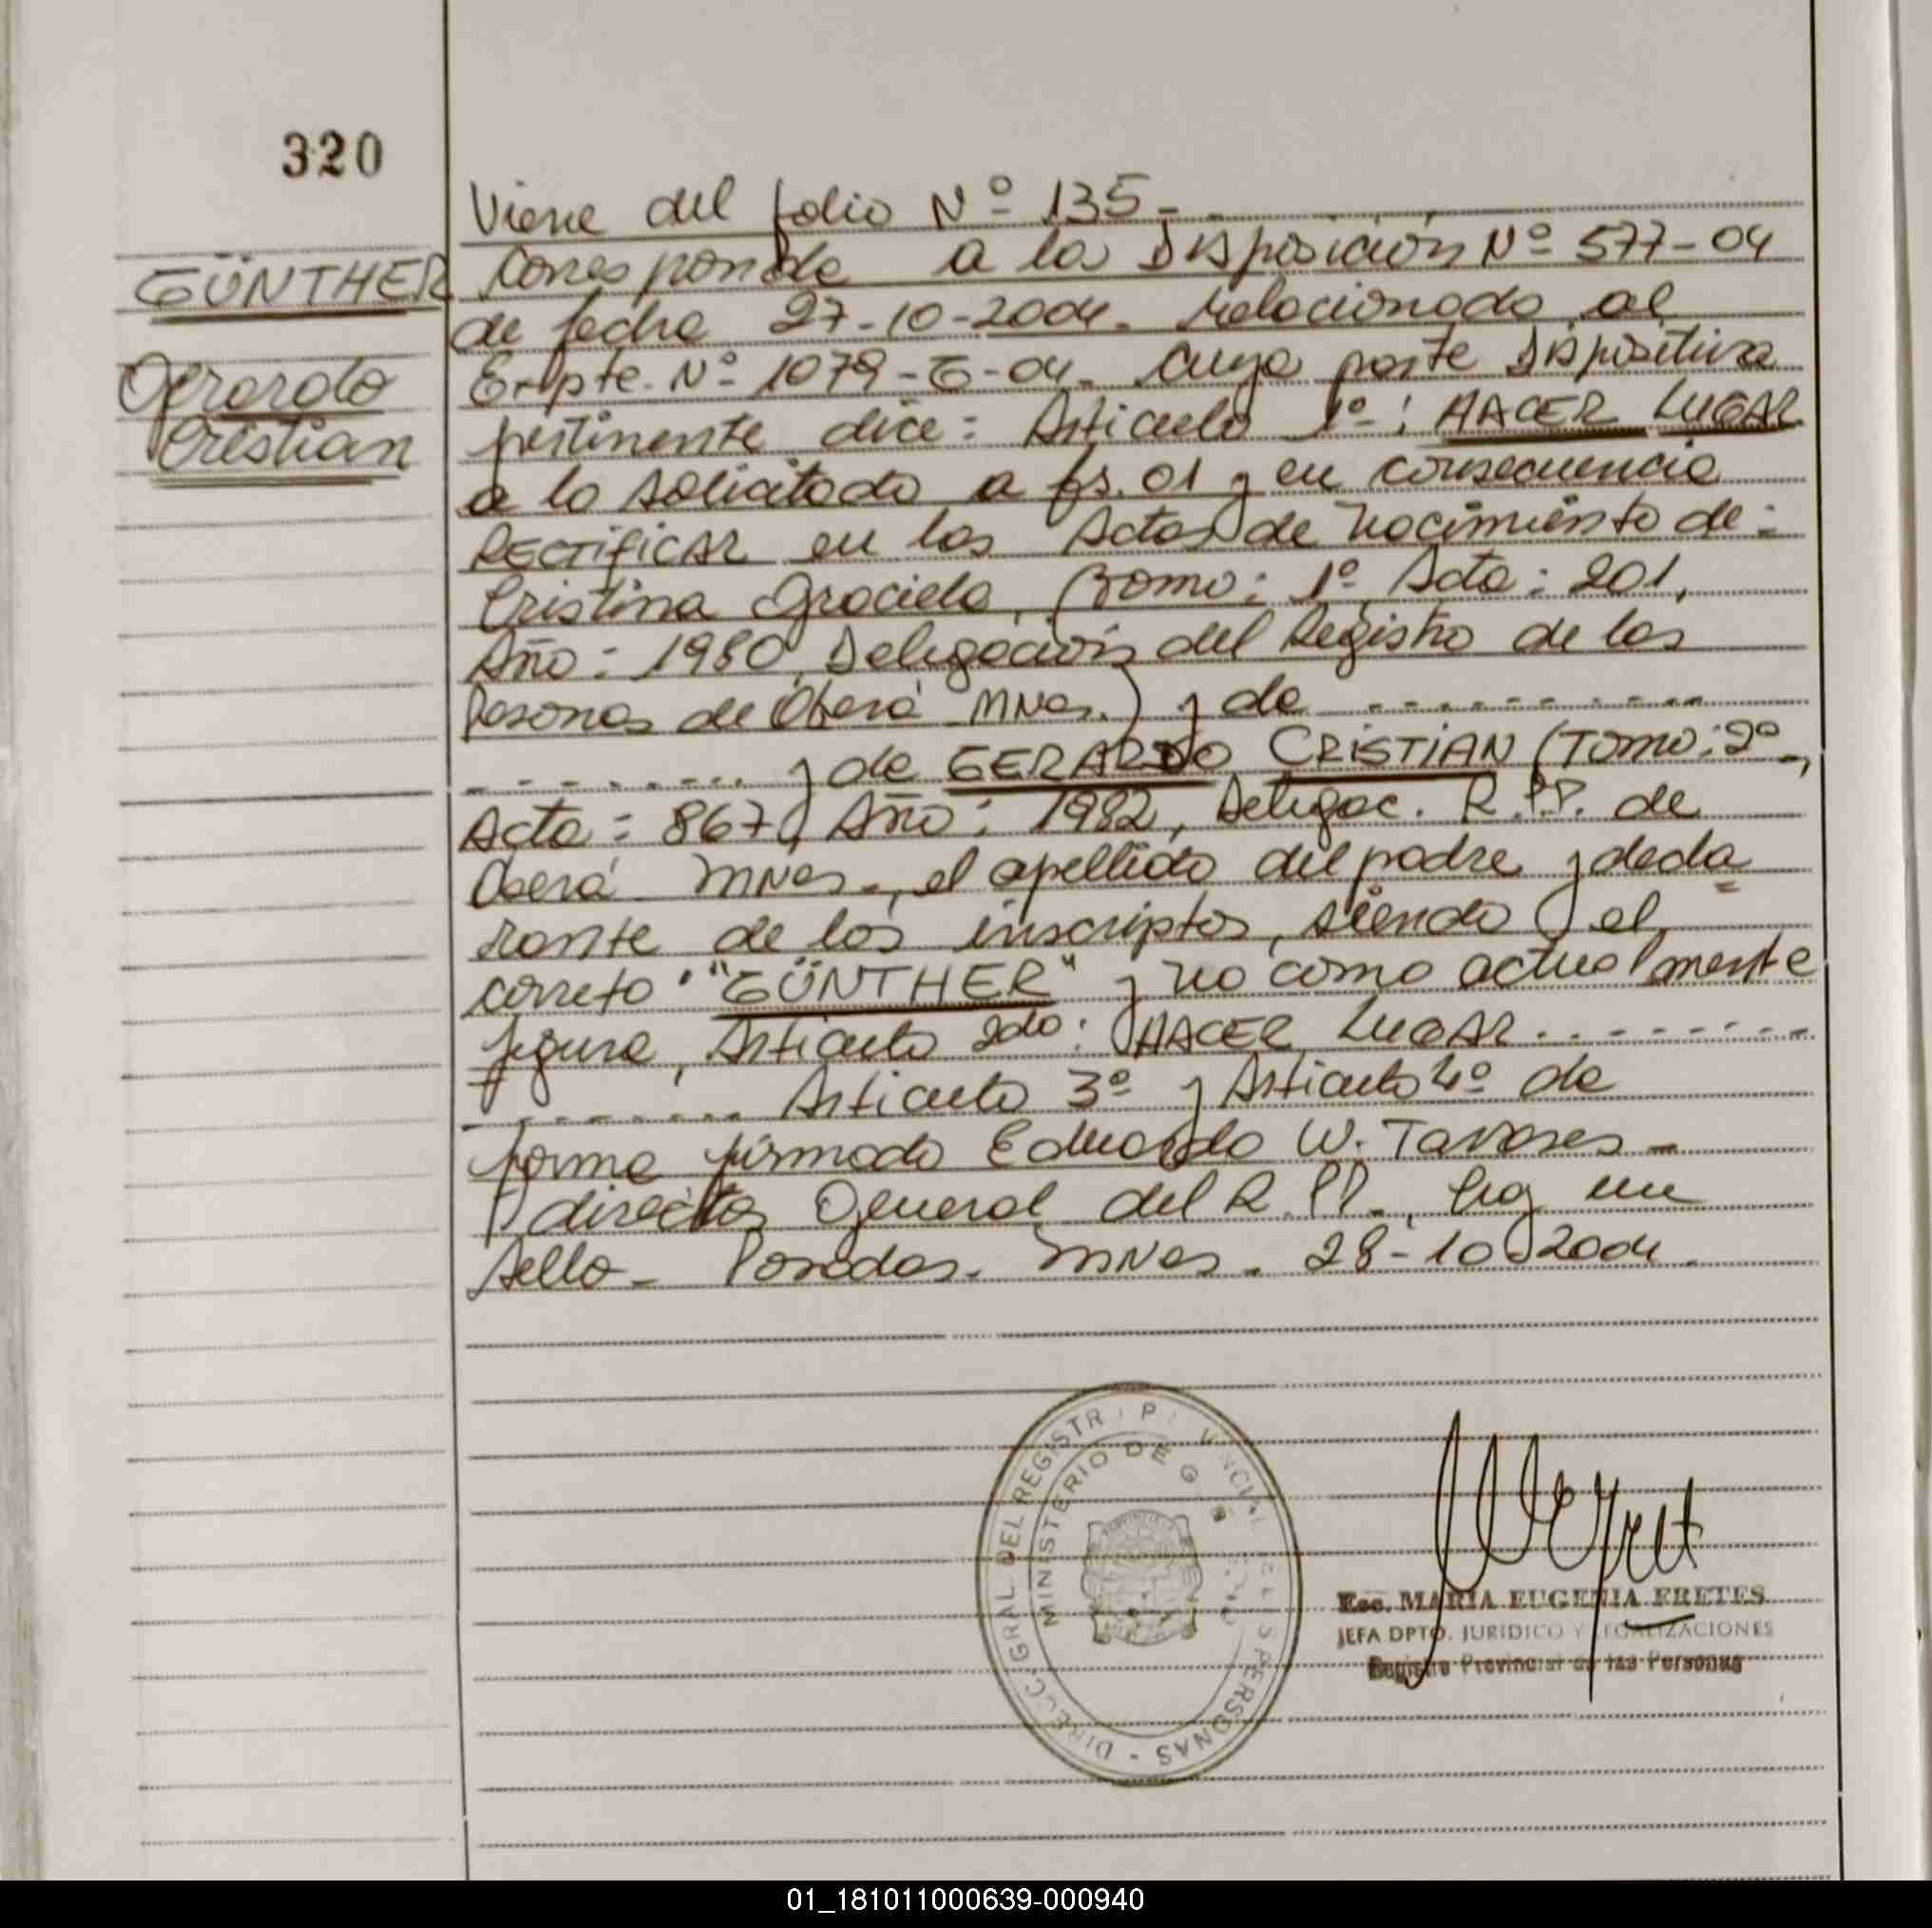 320
GÜNTHER
Gerardo
Cristian
Viene del folio Nº 135-
Corresponde a la Disposición Nº 577-04
de fecha 27-10-2004. relacionado al
Expte. Nº 1079-G-04. cuya parte Dispositiva
pertinente dice: Articulo 1º: HACER LUGAR
a lo solicitado a fs. 01 y en consecuencia
RECTIFICAR en las Actas de Nacimiento de:
Cristina Graciela, (Tomo: 1º Acta: 201,
Año: 1980, Delegación del Registro de las
Personas de Oberá Mnes.) y de ------------
--------- y de GERARDO CRISTIAN (Tomo: 2º,
Acta: 867, Año: 1982, Delegac. R.P.P. de
Oberá Mnes-, el apellido del padre y decla
rante de los inscriptos, siendo el
correto "GÜNTHER" y no como actualmente
figura, Articulo 2do: HACER LUGAR. ---------
--------- Articulo 3º y Articulo 4º de
forma firmado Eduardo W. Tavares -
director General del R.P.P., Hay un
Sello- Posadas. Mnes. 28-10-2004.
DIRECC. GRAL. DEL REGISTR PR VINCIAL DE L S PERSONAS -
MINISTERIO DE G
Esc. MARIA EUGENIA FRETES
JEFA DPTO. JURIDICO Y LEGALIZACIONES
Registro Provincial de las Personas
01_181011000639-000940